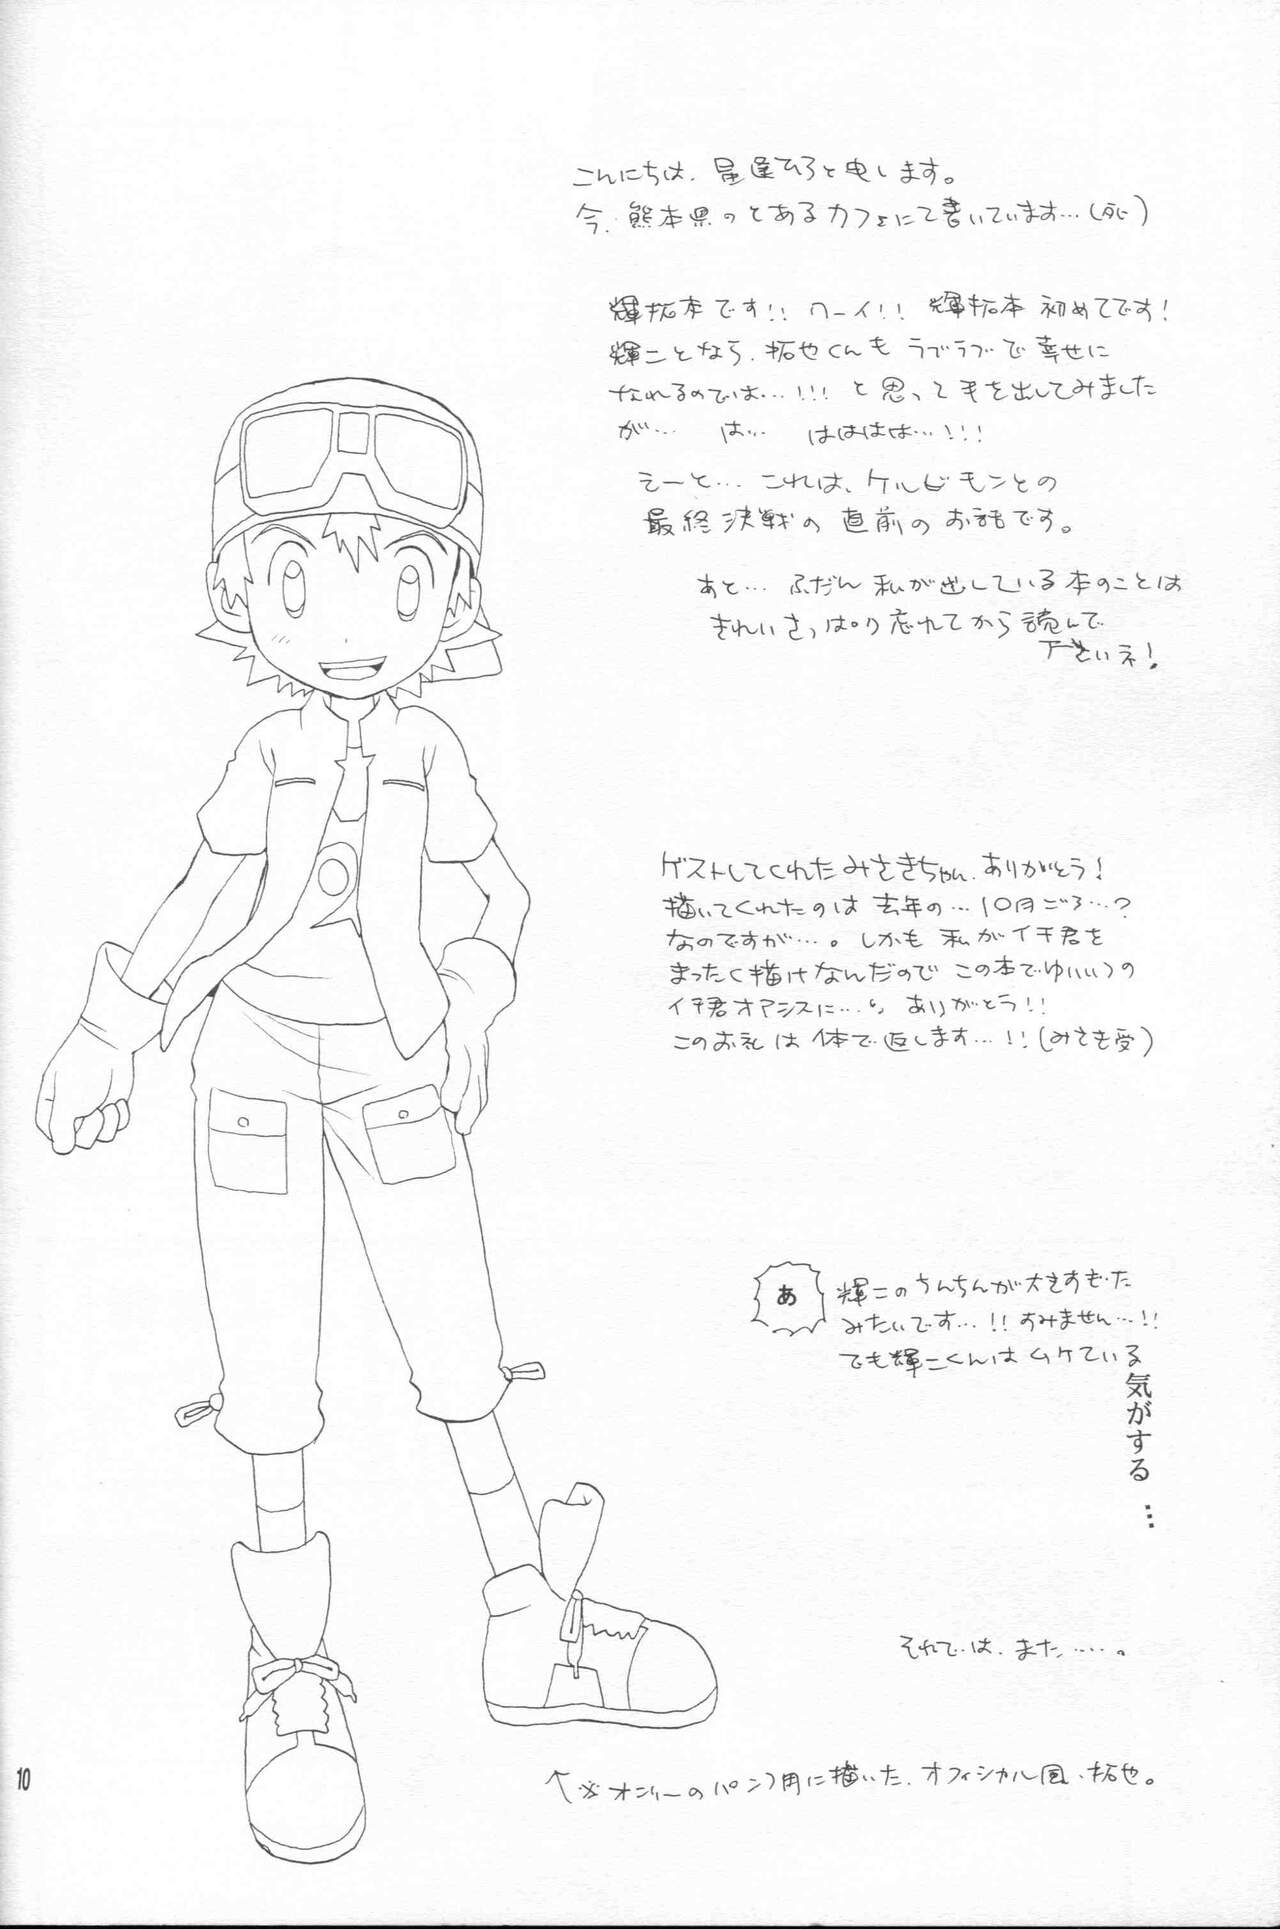 こんにちは、星逢ひろと申します。
今、熊本県のとあるカフェにて書いています…(死)
輝拓本です!! ワーイ!! 輝拓本初めてです!
輝二となら、拓也くんもラブラブで幸せに
なれるのでは…!!! と思って手を出してみました
が… は… はははは…!!!
えーと… これは、ケルビモンとの
最終決戦の直前のお話です。
あと… ふだん私が出している本のことは
きれいさっぱり忘れてから読んで
下さいネ!
ゲストしてくれたみさきちゃん、ありがとう!
描いてくれたのは去年の…10月ごろ…?
なのですが…。しかも私がイチ君を
まったく描けなんだので この本でゆいいつの
イチ君オアシスに…。ありがとう!!
このお礼は体で返します…!!(みさき受)
あ
それでは、また……。
↑※オンリーのパンフ用に描いた、オフィシャル風・拓也。
10